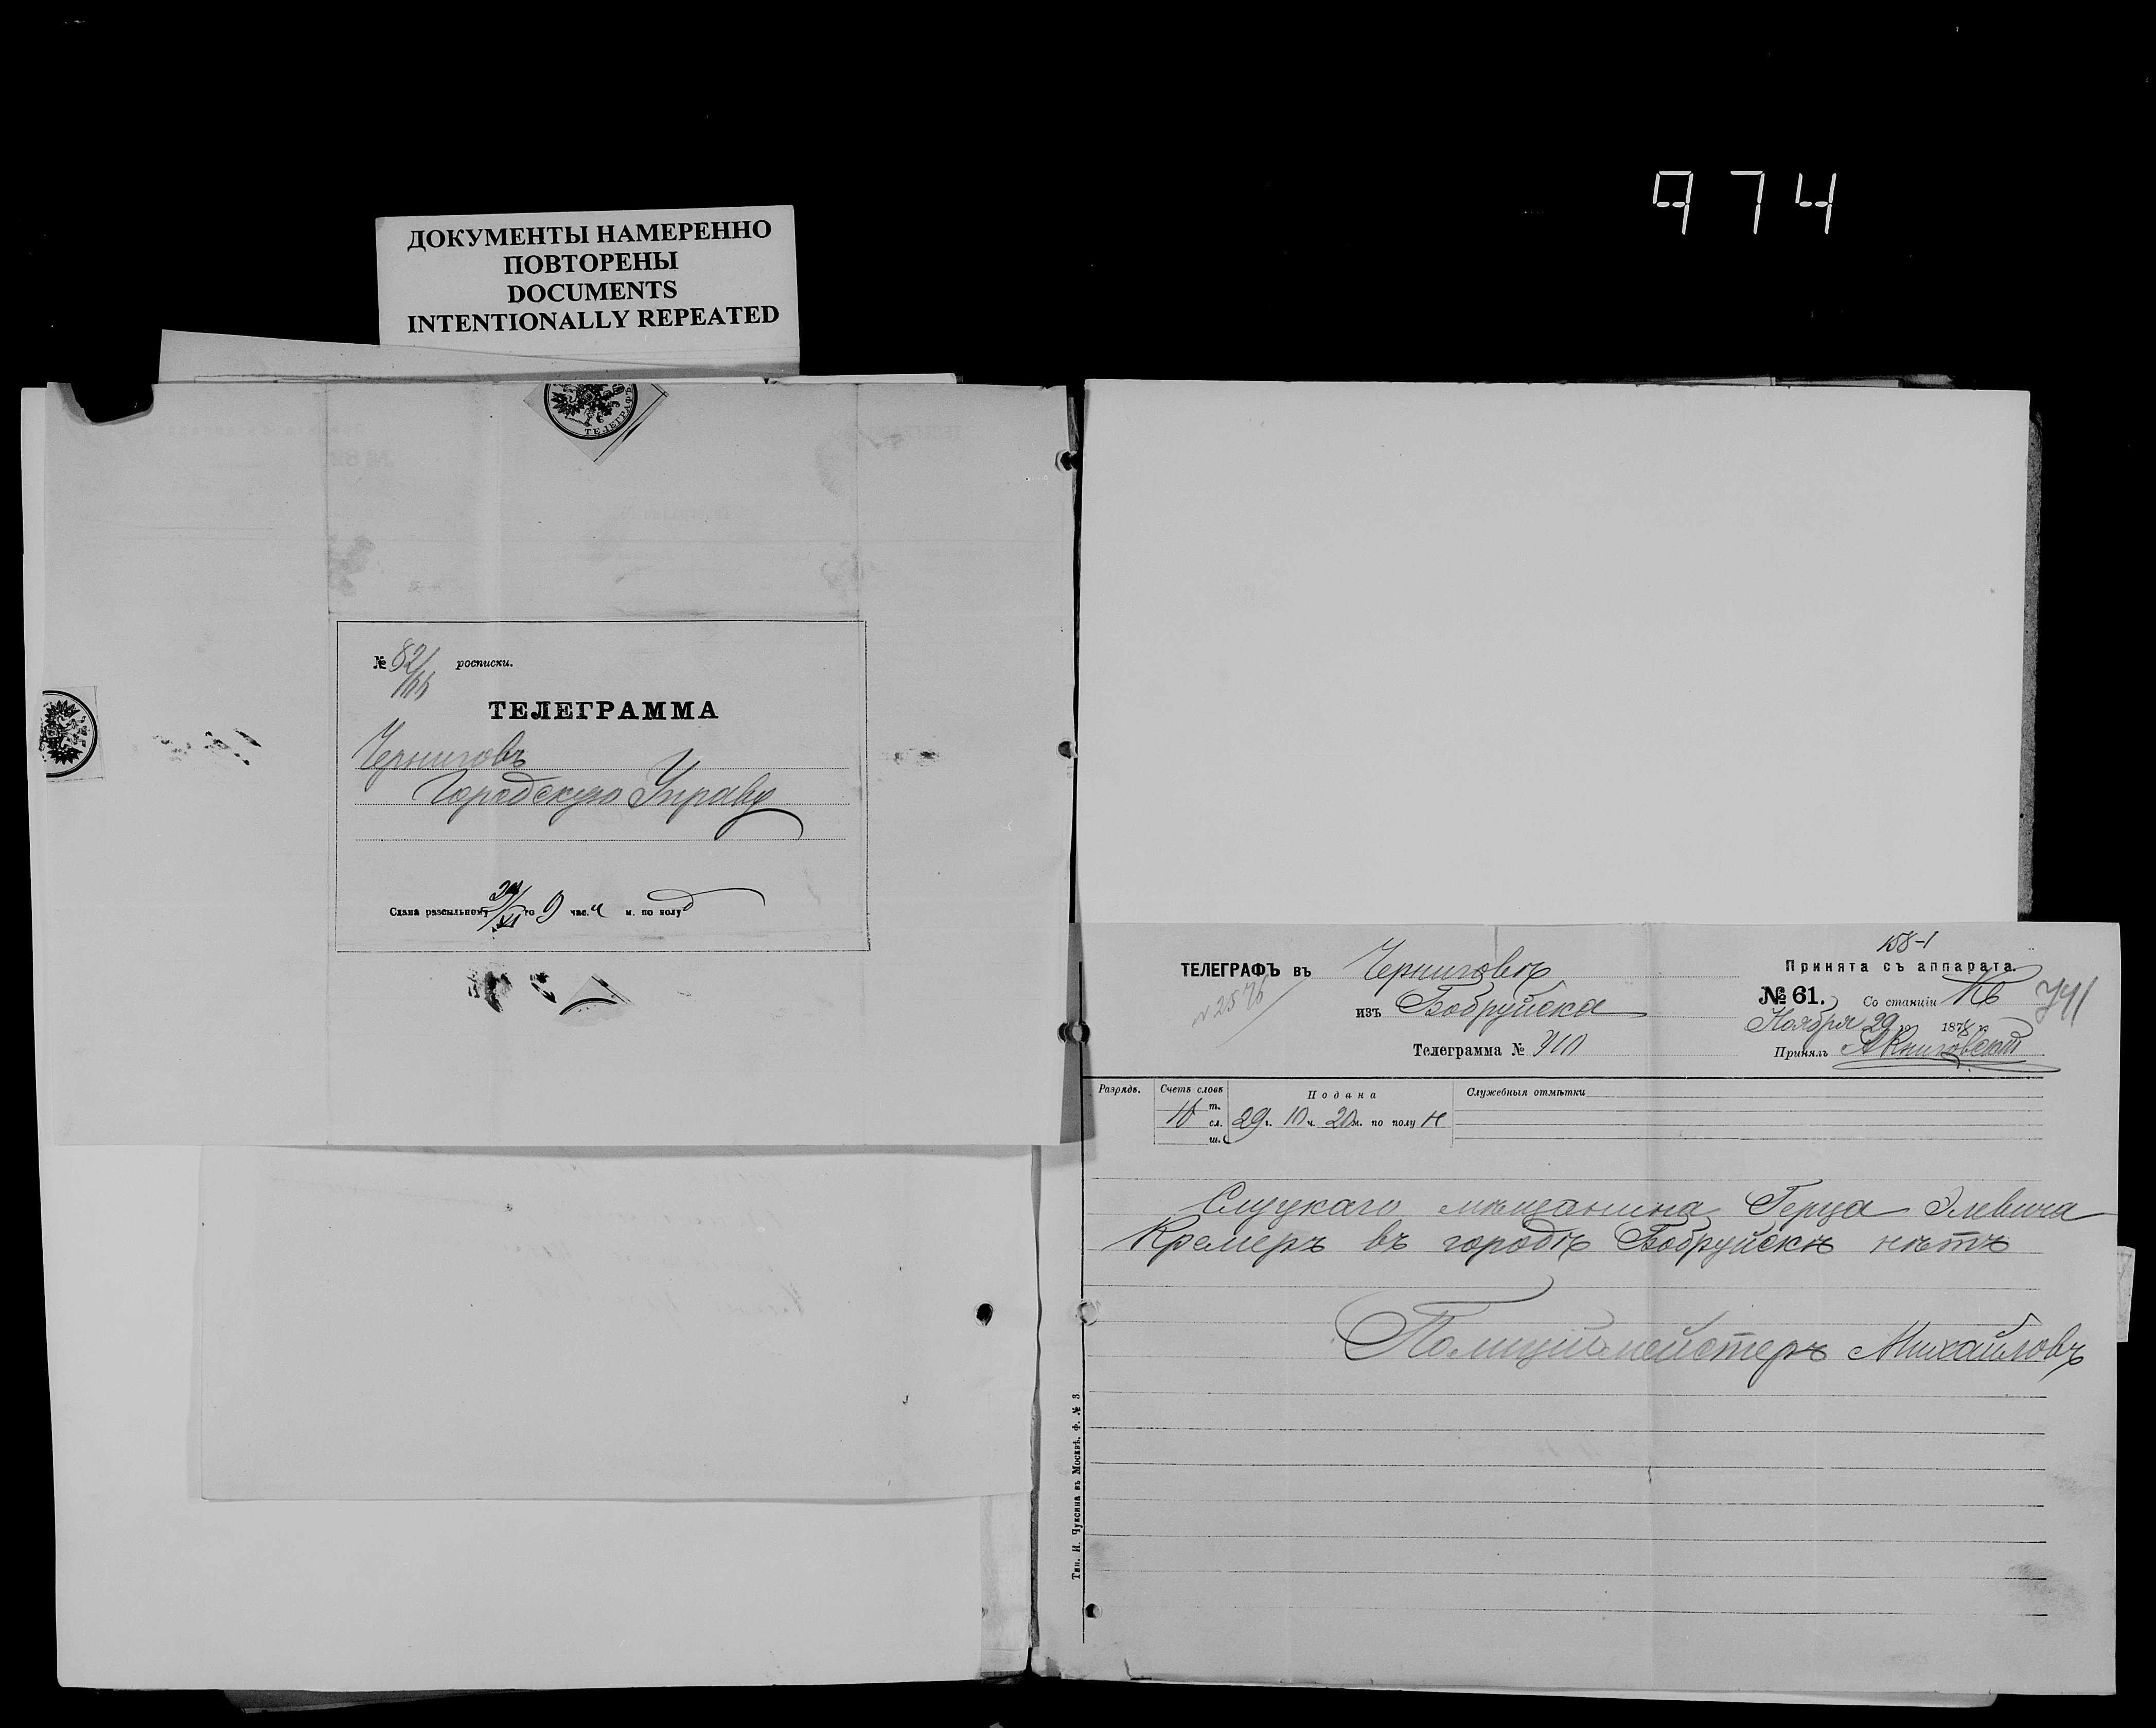 974
ДОКУМЕНТЫ НАМЕРЕННО
ПОВТОРЕНЫ
DOCUMENTS
INTENTIONALLY REPEATED
ТЕЛЕГРАФЪ
№ 82/ росписки.
ТЕЛЕГРАММА
Черниговъ
Городскую Управу
Сдана разсыльному 29/XI го 9 час. 4 м. по полуд
158-1
ТЕЛЕГРАФЪ въ Черниговѣ
Принята съ аппарата.
№ 61. Со станціи Кв
изъ Бобруйска
Ноября 29 го 1878 г.
Телеграмма №
Принялъ
Разрядъ. Счетъ словъ Подана Служебныя отмѣтки
т.
сл. 29 г. 10 ч. 20 м. по полу н
ш.
Слуцкаго мѣщанина Герца Элевича
Кремеръ въ городѣ Бобруйскѣ нѣтъ
Полиціймейстеръ Михайловъ
Тип. И. Чуксина въ Москвѣ. Ф. № 3